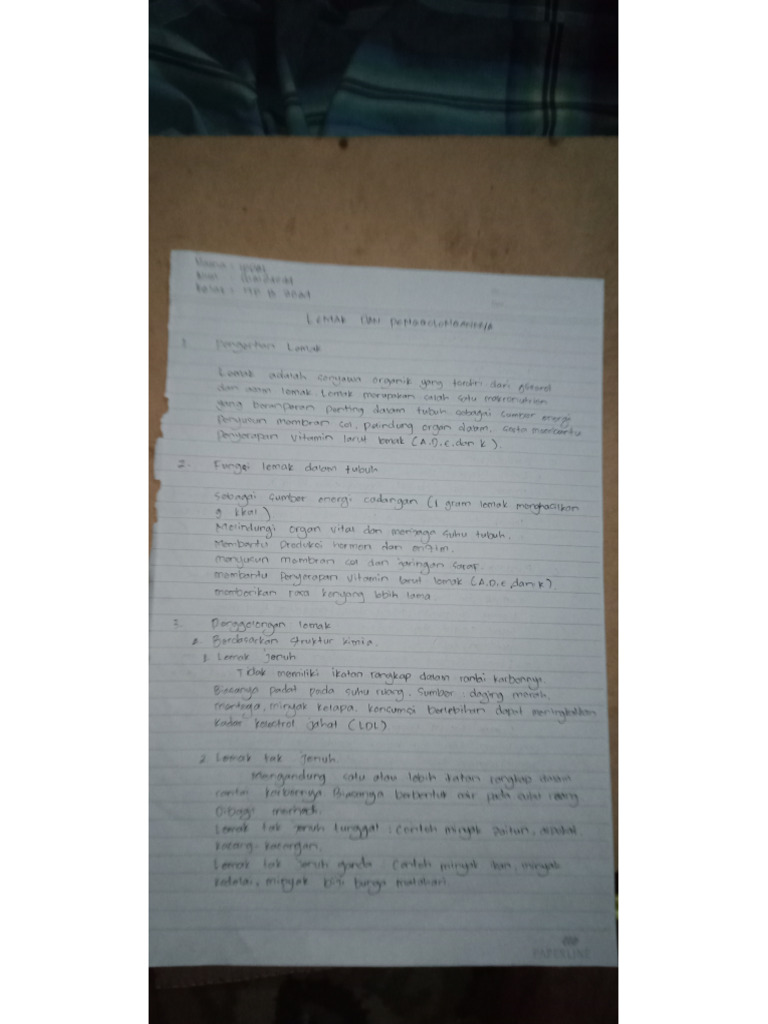 Nama :
Kelas :
LEMAK DAN PENGGOLONGANNYA
1. Pengertian Lemak
Lemak adalah senyawa organik yang terdiri dari gliserol
dan asam lemak. Lemak merupakan salah satu makronutrien
yang berperan penting dalam tubuh sebagai sumber energi
Penyusun membran sel, pelindung organ dalam, serta membantu
Penyerapan vitamin larut lemak (A.D.E.dan K).
2. Fungsi lemak dalam tubuh
Sebagai sumber energi cadangan (1 gram lemak menghasilkan
9 kkal)
Melindungi organ vital dan menjaga suhu tubuh.
Membantu Produksi hormon dan enzim.
menyusun membran sel dan jaringan saraf.
membantu Penyerapan vitamin larut lemak (A.D.E,dan K).
memberikan rasa kenyang lebih lama
3. Penggolongan lemak
a. Berdasarkan struktur kimia.
1. Lemak jenuh
Tidak memiliki ikatan rangkap dalam rantai karbonnya.
Biasanya padat pada suhu ruang. Sumber : daging merah,
mentega, minyak kelapa. konsumsi berlebihan dapat meningkatkan
kadar kolestrol jahat (LDL)
2. Lemak tak jenuh.
Mengandung satu atau lebih ikatan rangkap dalam
rantai karbonnya Biasanya berbentuk cair pada suhu ruang.
Dibagi menjadi.
Lemak tak jenuh tunggal : contoh minyak zaitun, alpukat
kacang-kacangan.
Lemak tak jenuh ganda : contoh minyak ikan, minyak
kedelai, minyak biji bunga matahari
PAPERLINE